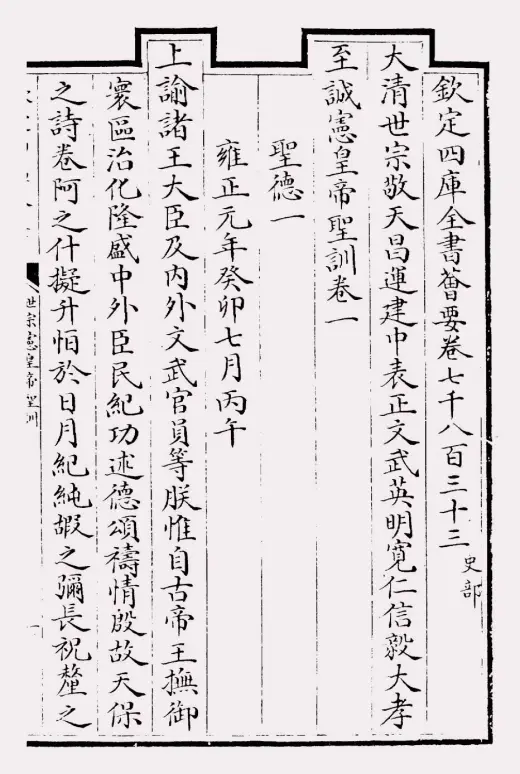 欽定四庫全書薈要卷七千八百三十三 史部
大清世宗敬天昌運建中表正文武英明寬仁信毅大孝
至誠憲皇帝聖訓卷一
聖德一
雍正元年癸卯七月丙午
上諭諸王大臣及內外文武官員等朕惟自古帝王撫御
寰區治化隆盛中外臣民紀功述德頌禱情殷故天保
之詩卷阿之什擬升恒於日月紀純嘏之彌長祝釐之
世宗憲皇帝聖訓